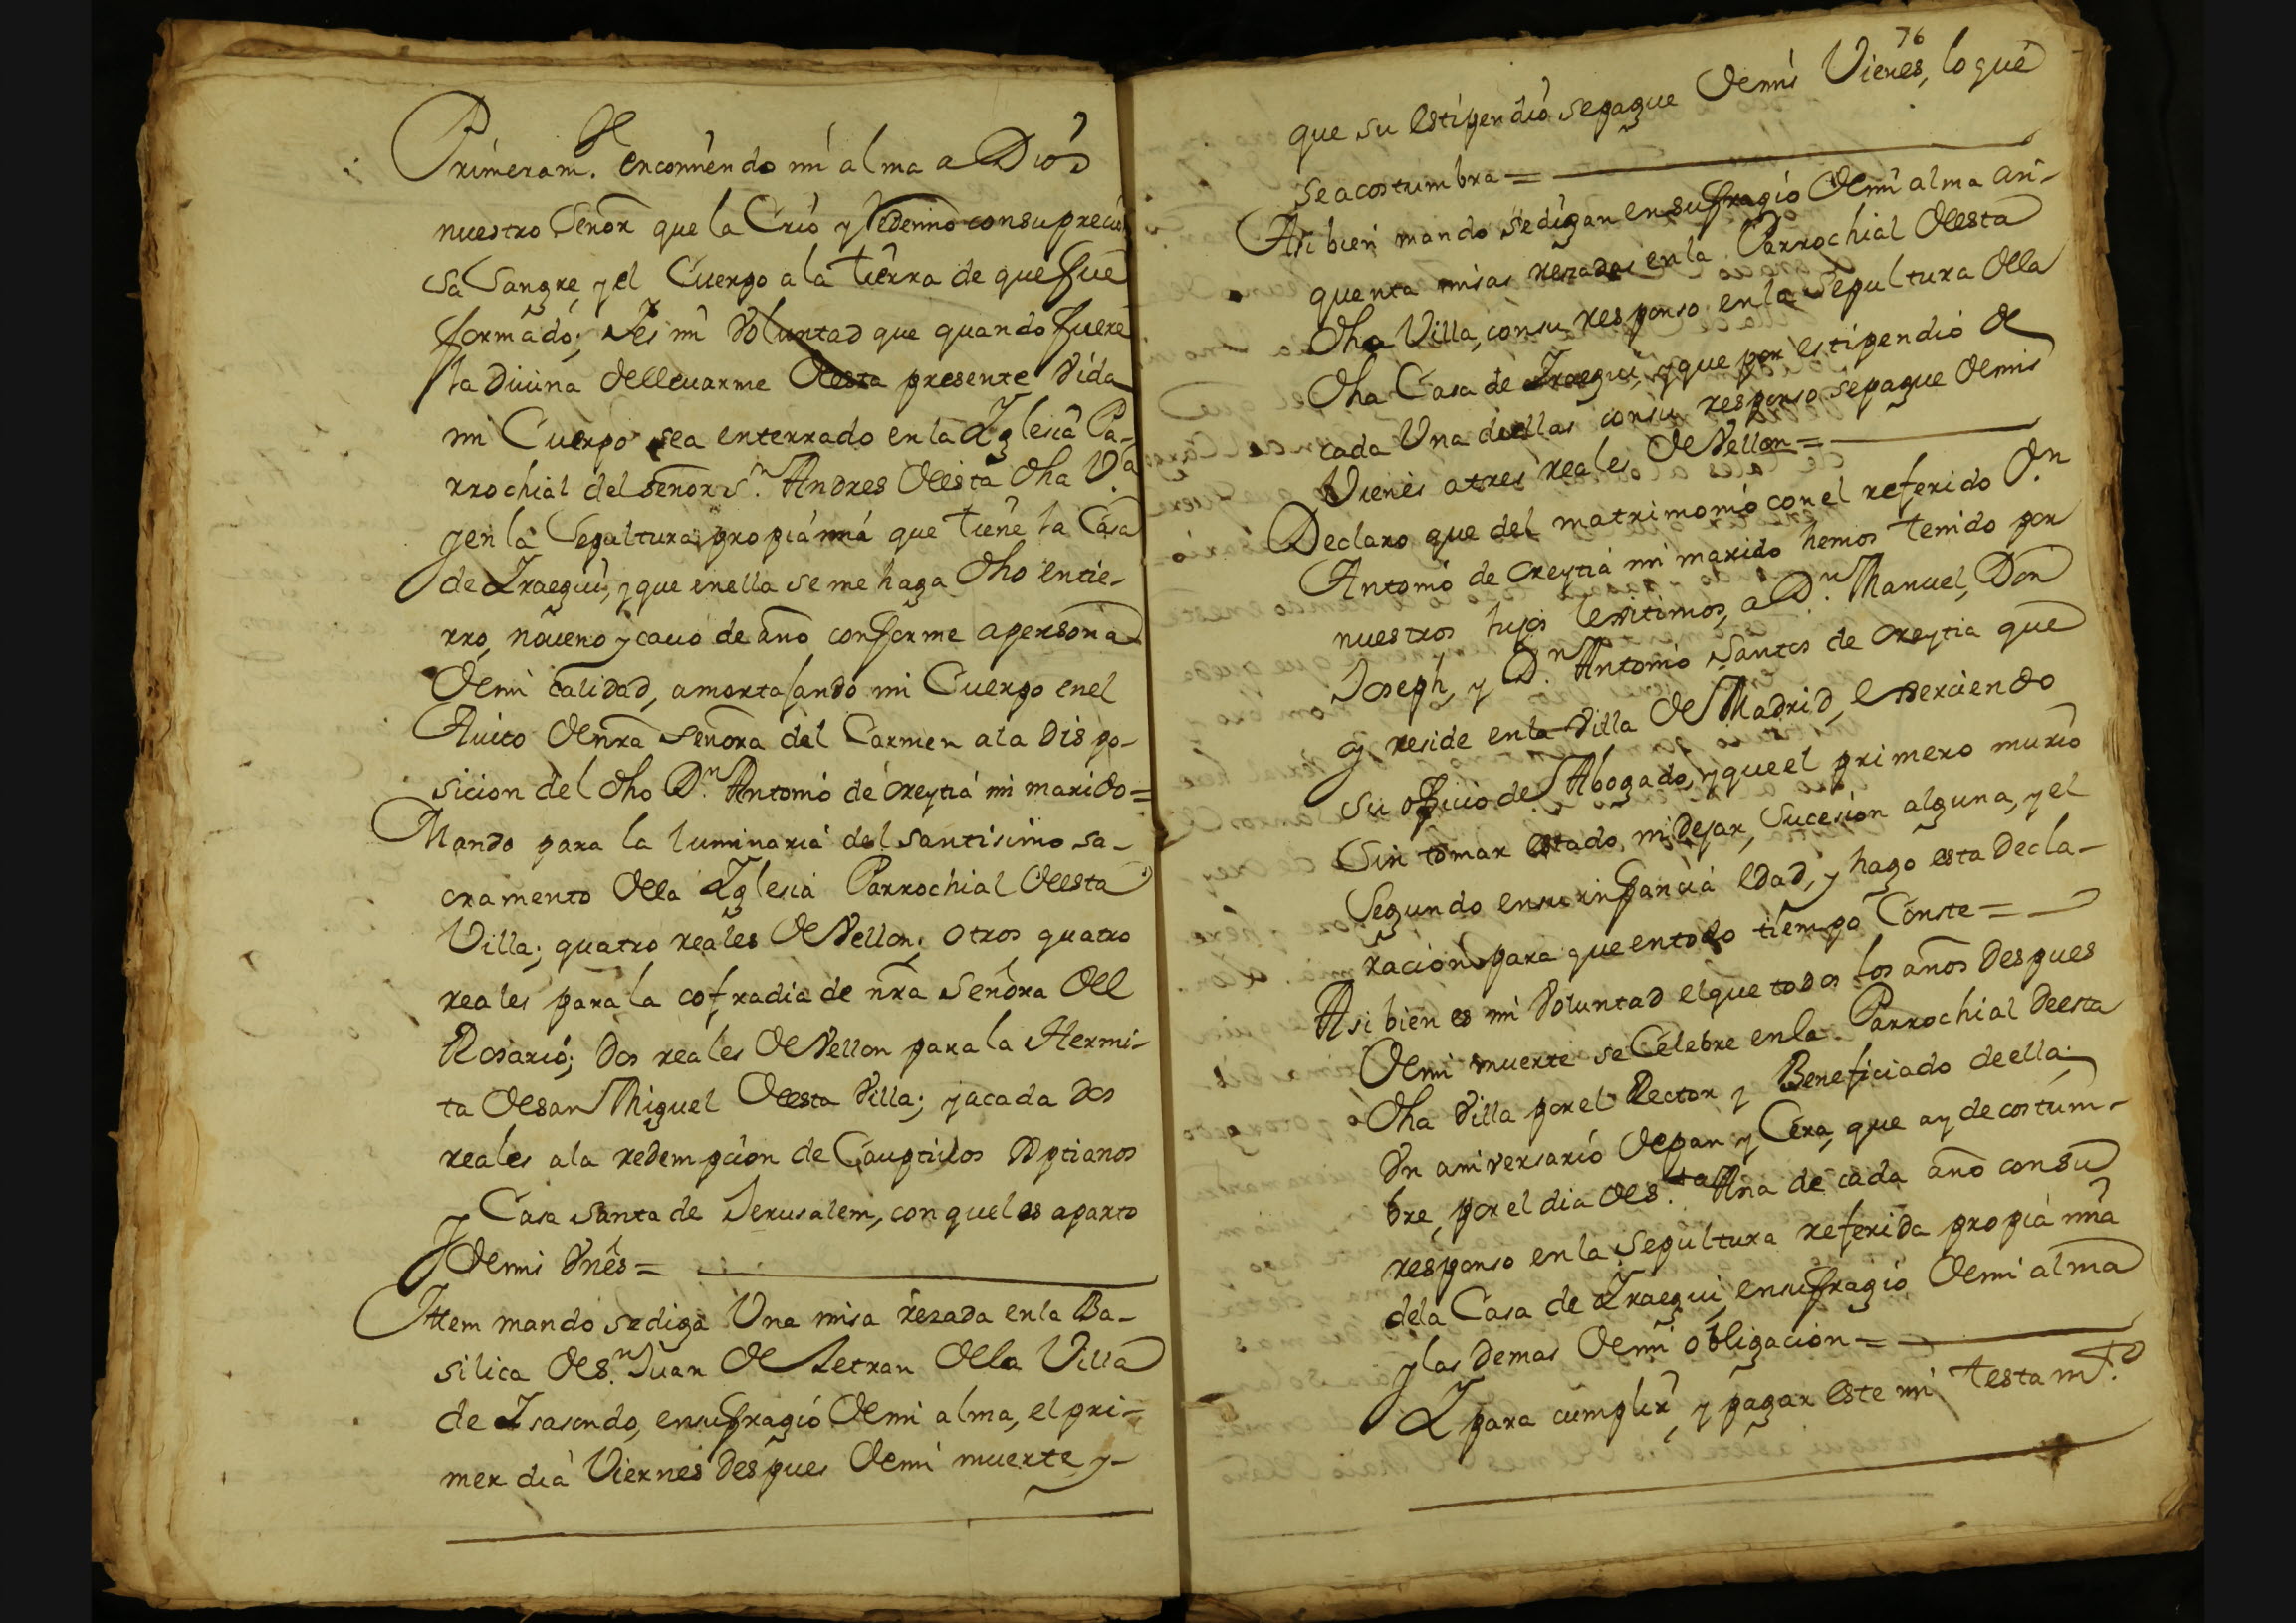 Primeram.te encomiendo mi alma a Dios
nuestro Señor que la Crió y Redemió consu precio
sa Sangre, y el Cuerpo a la tierra de que fue
formado; y es mi Voluntad que quando fuere
la Divina de llevarme desta presente Vida
mi Cuerpo sea enterrado en la Iglesia Pa-
rrochial del señor S.n Andres desta dha V.a
y en la Sepultura propia mia que tiene la Casa
de Iraegui, y que en ella se me haga dho entie-
rro, noveno y cavo de año conforme a persona
de mi calidad, amortajando mi Cuerpo en el
Avito de nra Señora del Carmen a la Dispo-
sicion del dho D.n Antonio de oreytia mi marido=
Mando para la luminaria del santisimo sa-
cramento de la Iglesia Parrochial desta
Villa; quatro reales de Vellon; otros quatro
reales para la cofradia de nra Señora del
Rosario; Dos reales de Vellon para la Hermi-
ta de san Miguel desta Villa; y a cada dos
reales a la redempcion de Cauptivos Xptianos
y Casa Santa de Jerusalem, con que les aparto
de mis Vnes=
Ittem mando se diga Una misa rezada en la Ba-
silica de S.n Juan de Letran de la Villa
de Isasondo, en sufragio de mi alma, el pri-
mer dia Viernes despues de mi muerte y-
76
que su estipendio se pague de mis Vienes, lo que
se acostumbra=
Asi bien mando se digan en sufragio de mi alma cin-
quenta misas rezadas en la Parrochial desta
dha Villa, con su responso en la Sepultura de la
dha Casa de Iraegui, y que por estipendio de
cada Una de ellas con su responso se pague de mis
Vienes a tres reales de Vellon=
Declaro que del matrimonio con el referido D.n
Antonio de oreytia mi marido hemos tenido por
nuestros hijos lexitimos, a D.n Manuel, Don
Joseph, y D.n Antonio Santos de oreytia que
oy reside en la Villa de Madrid, exerciendo
su oficio de Abogado, y que el primero murio
sin tomar estado, ni dejar, sucesion alguna, y el
Segundo en su infancia edad, y hago esta decla-
racion para que en todo tiempo Conste=
Asi bien es mi Voluntad el que todos los años despues
de mi muerte se Celebre en la Parrochial de esta
dha Villa por el Rector y Beneficiado de ella;
Un aniversario de pan y Cera, que ay de costum-
bre, por el dia de S.ta Ana de cada año con su
responso en la Sepultura referida propia mia
de la Casa de Iraegui en sufragio de mi alma
y las demas de mi obligacion=
I para cumplir, y pagar este mi testam.to